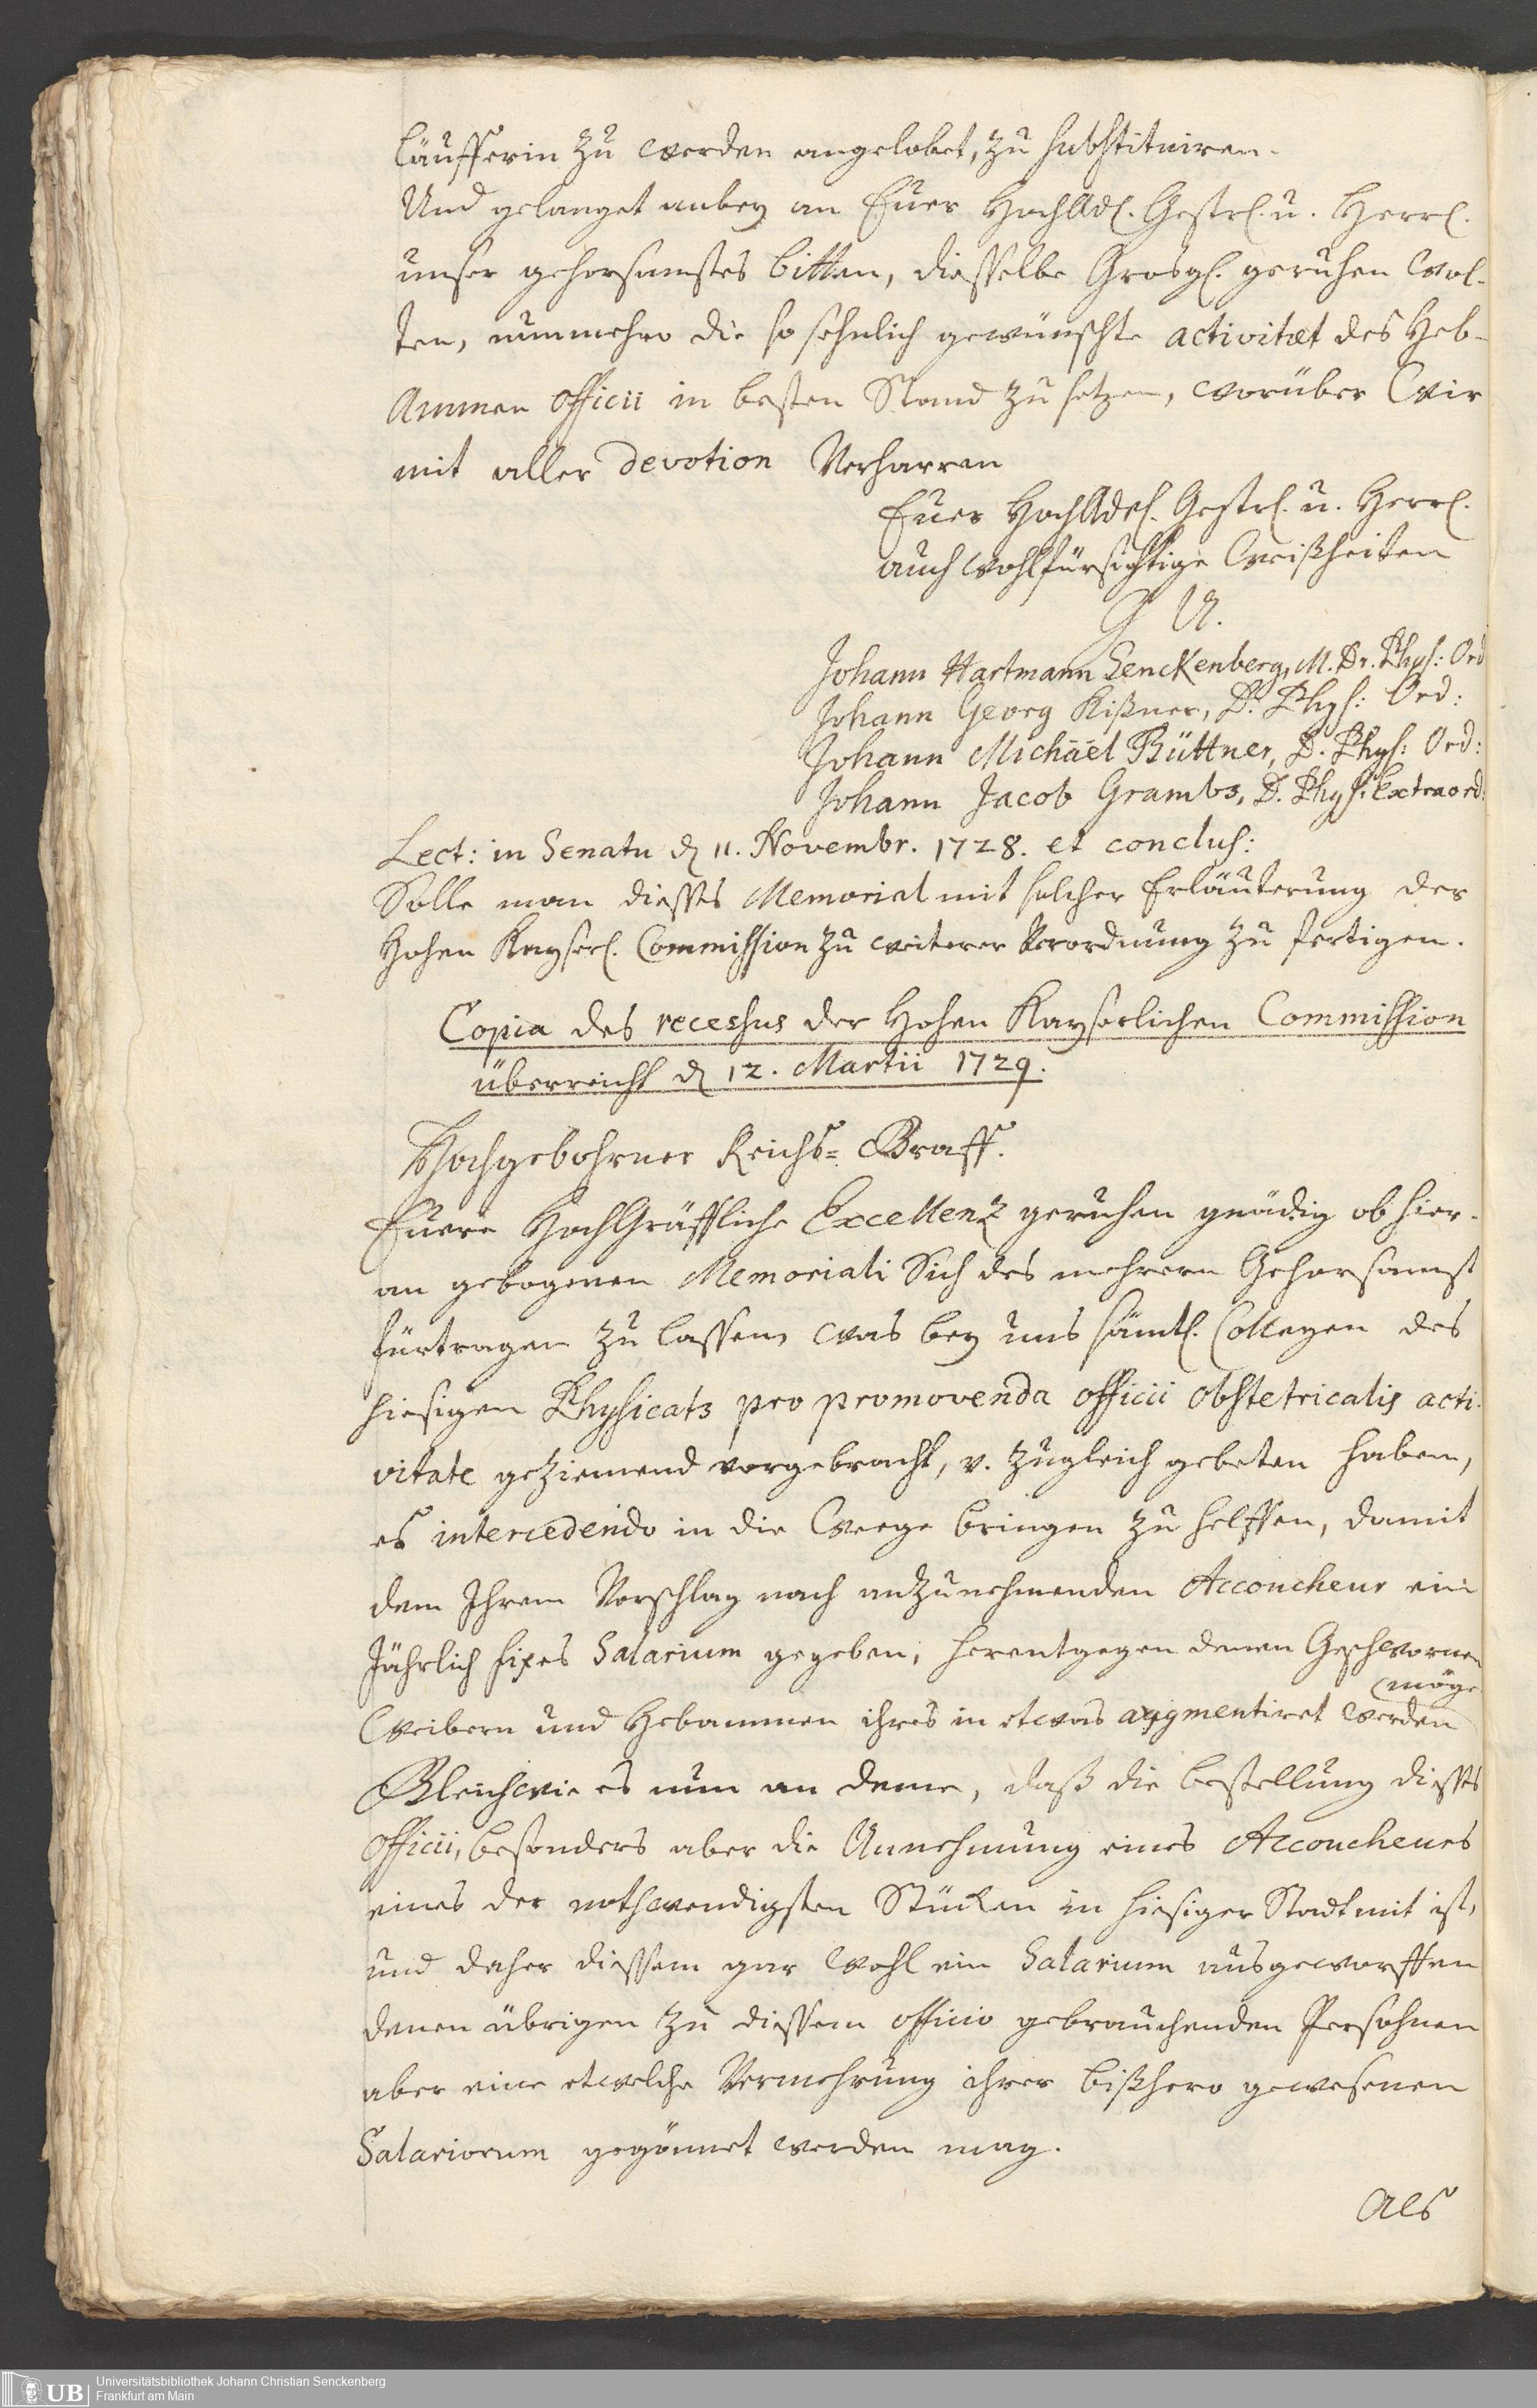 läufferin zu werden angelobet, zu substituiren.
Und gelanget anbey an Euer HochAdl. Gestrl. u. Herrl.
unser gehorsamstes bitten, diesselbe Grosgl. geruhen wol-
ten, nunmehro die so sehnlich gewünschte activitæt des Heb-
Ammen Officii in besten Stand zu setzen, worüber Wir
mit aller devotion Verharren
Euer HochAdel. Gestrl. u. Herrl.
auch wohlfürsichtige Weißheiten
Johann Hartmann Senckenberg, M. Dr. Phys: Ord
Johann Georg Kißner, D. Phys: Ord:
Johann Michäel Büttner, D. Phys: Ord:
Johann Jacob Grambs, D. Phys: Extraord:
Lect: in Senatu d. 11. Novembr. 1728. et conclus:
Solle man diesses Memorial mit solcher Erläuterung der
Hohen Kayserl. Commission zu weiterer Verordnung zu fertigen.
Copia des recessus der Hohen Kayserlichen Commission
überreicht d. 12. Martii 1729.
Hochgebohrner Reichs= Graff.
Euere HochGräffliche Excellenz geruhen gnädig ob hier-
an gebogenen Memoriali Sich des mehrern Gehorsamst
fürtragen zu lassen, was bey uns sämtl. Collegen des
hiesigen Physicats pro promovenda officii obstetricalis acti-
vitate geziemend vorgebracht, v. zugleich gebeten haben,
es intercedendo in die Weege bringen zu helffen, damit
dem Ihrem Vorschlag nach anzunehmenden Accoucheur ein
Jährlich fixes Salarium gegeben, herentgegen denen Geschwornen
Weibern und Hebammen ihres in etwas augmentiret werden
möge
Gleichwie es nun an deme, daß die bestellung diesses
Officii, besonders aber die Annehmung eines Accoucheurs
eines der nothwendigsten Stücken in hiesiger Stadt mit ist,
und daher diessem gar wohl ein Salarium ausgeworffen
denen übrigen zu diessem officio gebrauchenden Persohnen
aber eine etwelche Vermehrung ihrer bißhero gewesenen
Salariorum gegönnet werden mag.
Als
UB
Universitätsbibliothek Johann Christian Senckenberg
Frankfurt am Main